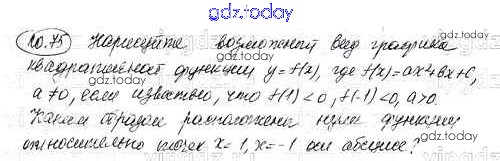 gdz.today
10.75 Нарисуйте возможный вид графика
gdz.today
квадратичной функции y=f(x), где f(x)=ax²+bx+c,
a≠0, если известно, что f(1)<0, f(-1)<0, a>0.
Каким образом расположены нули функции
относительно точек x=1, x=-1 оси абсцисс?
gdz.today